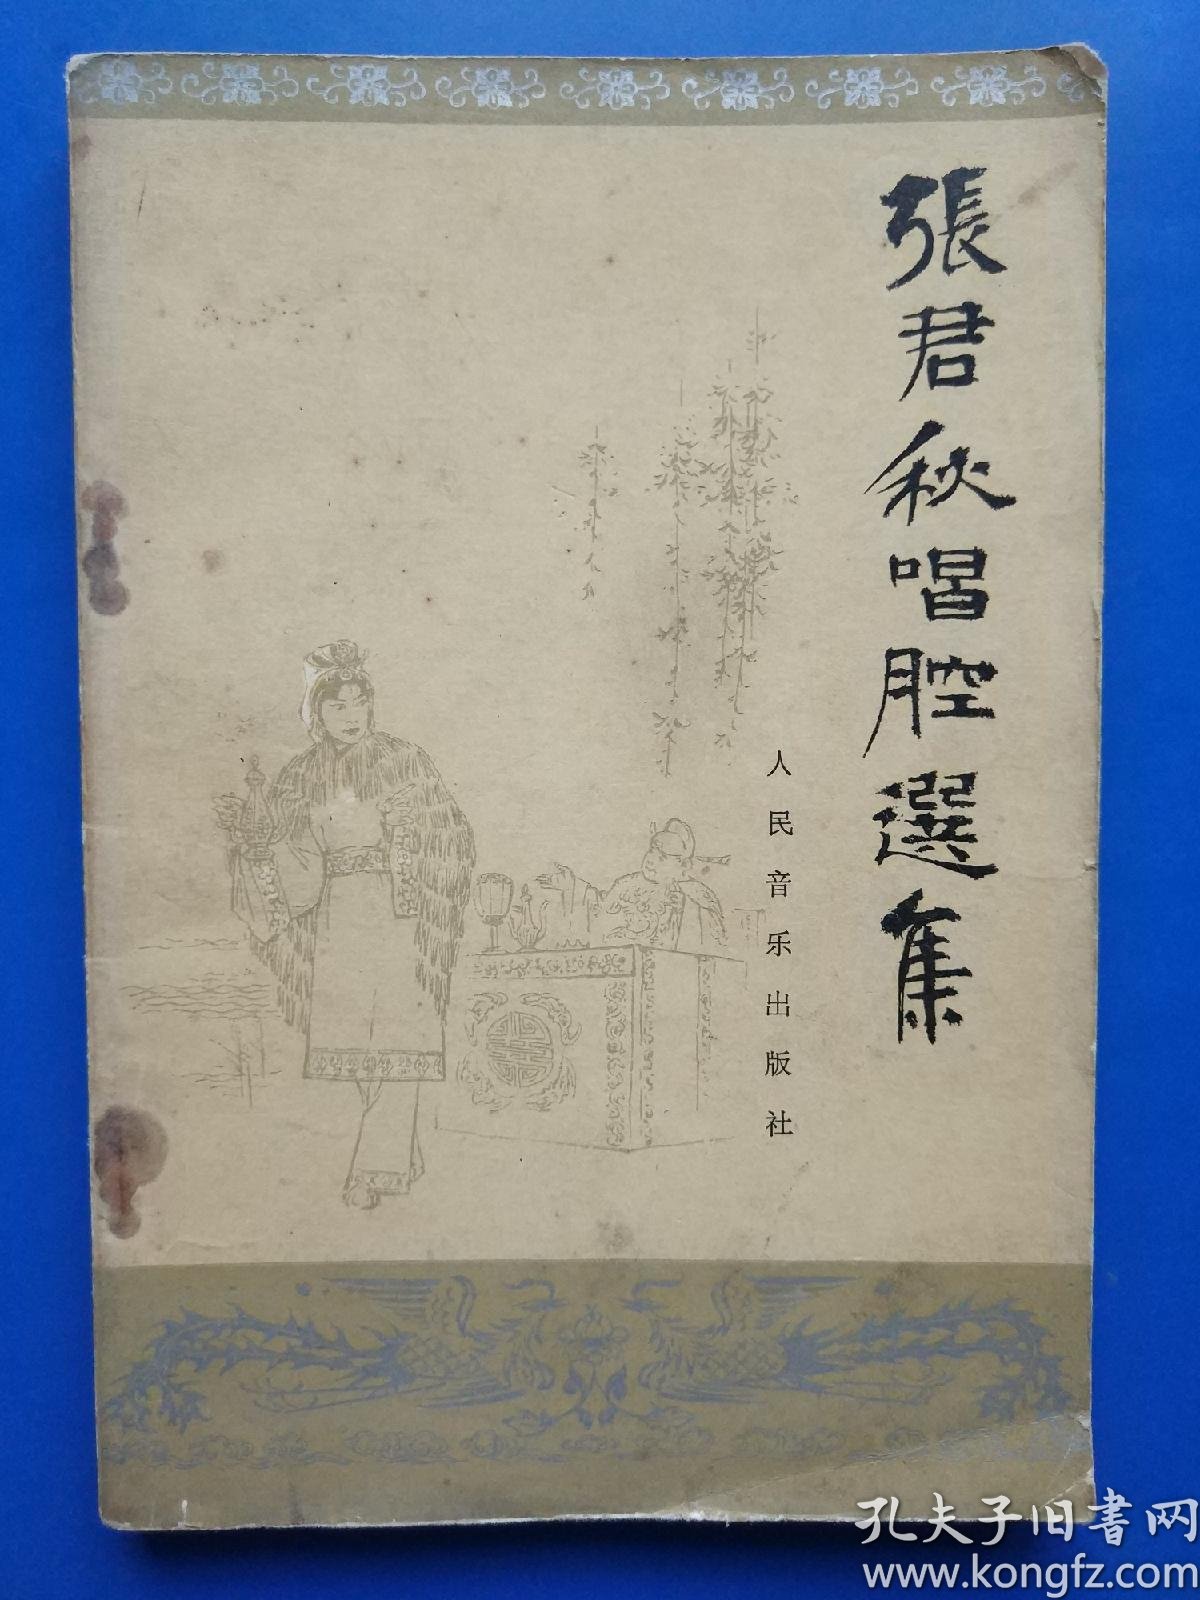 張君秋唱腔選集
人民音乐出版社
孔夫子旧书网
www.kongfz.com